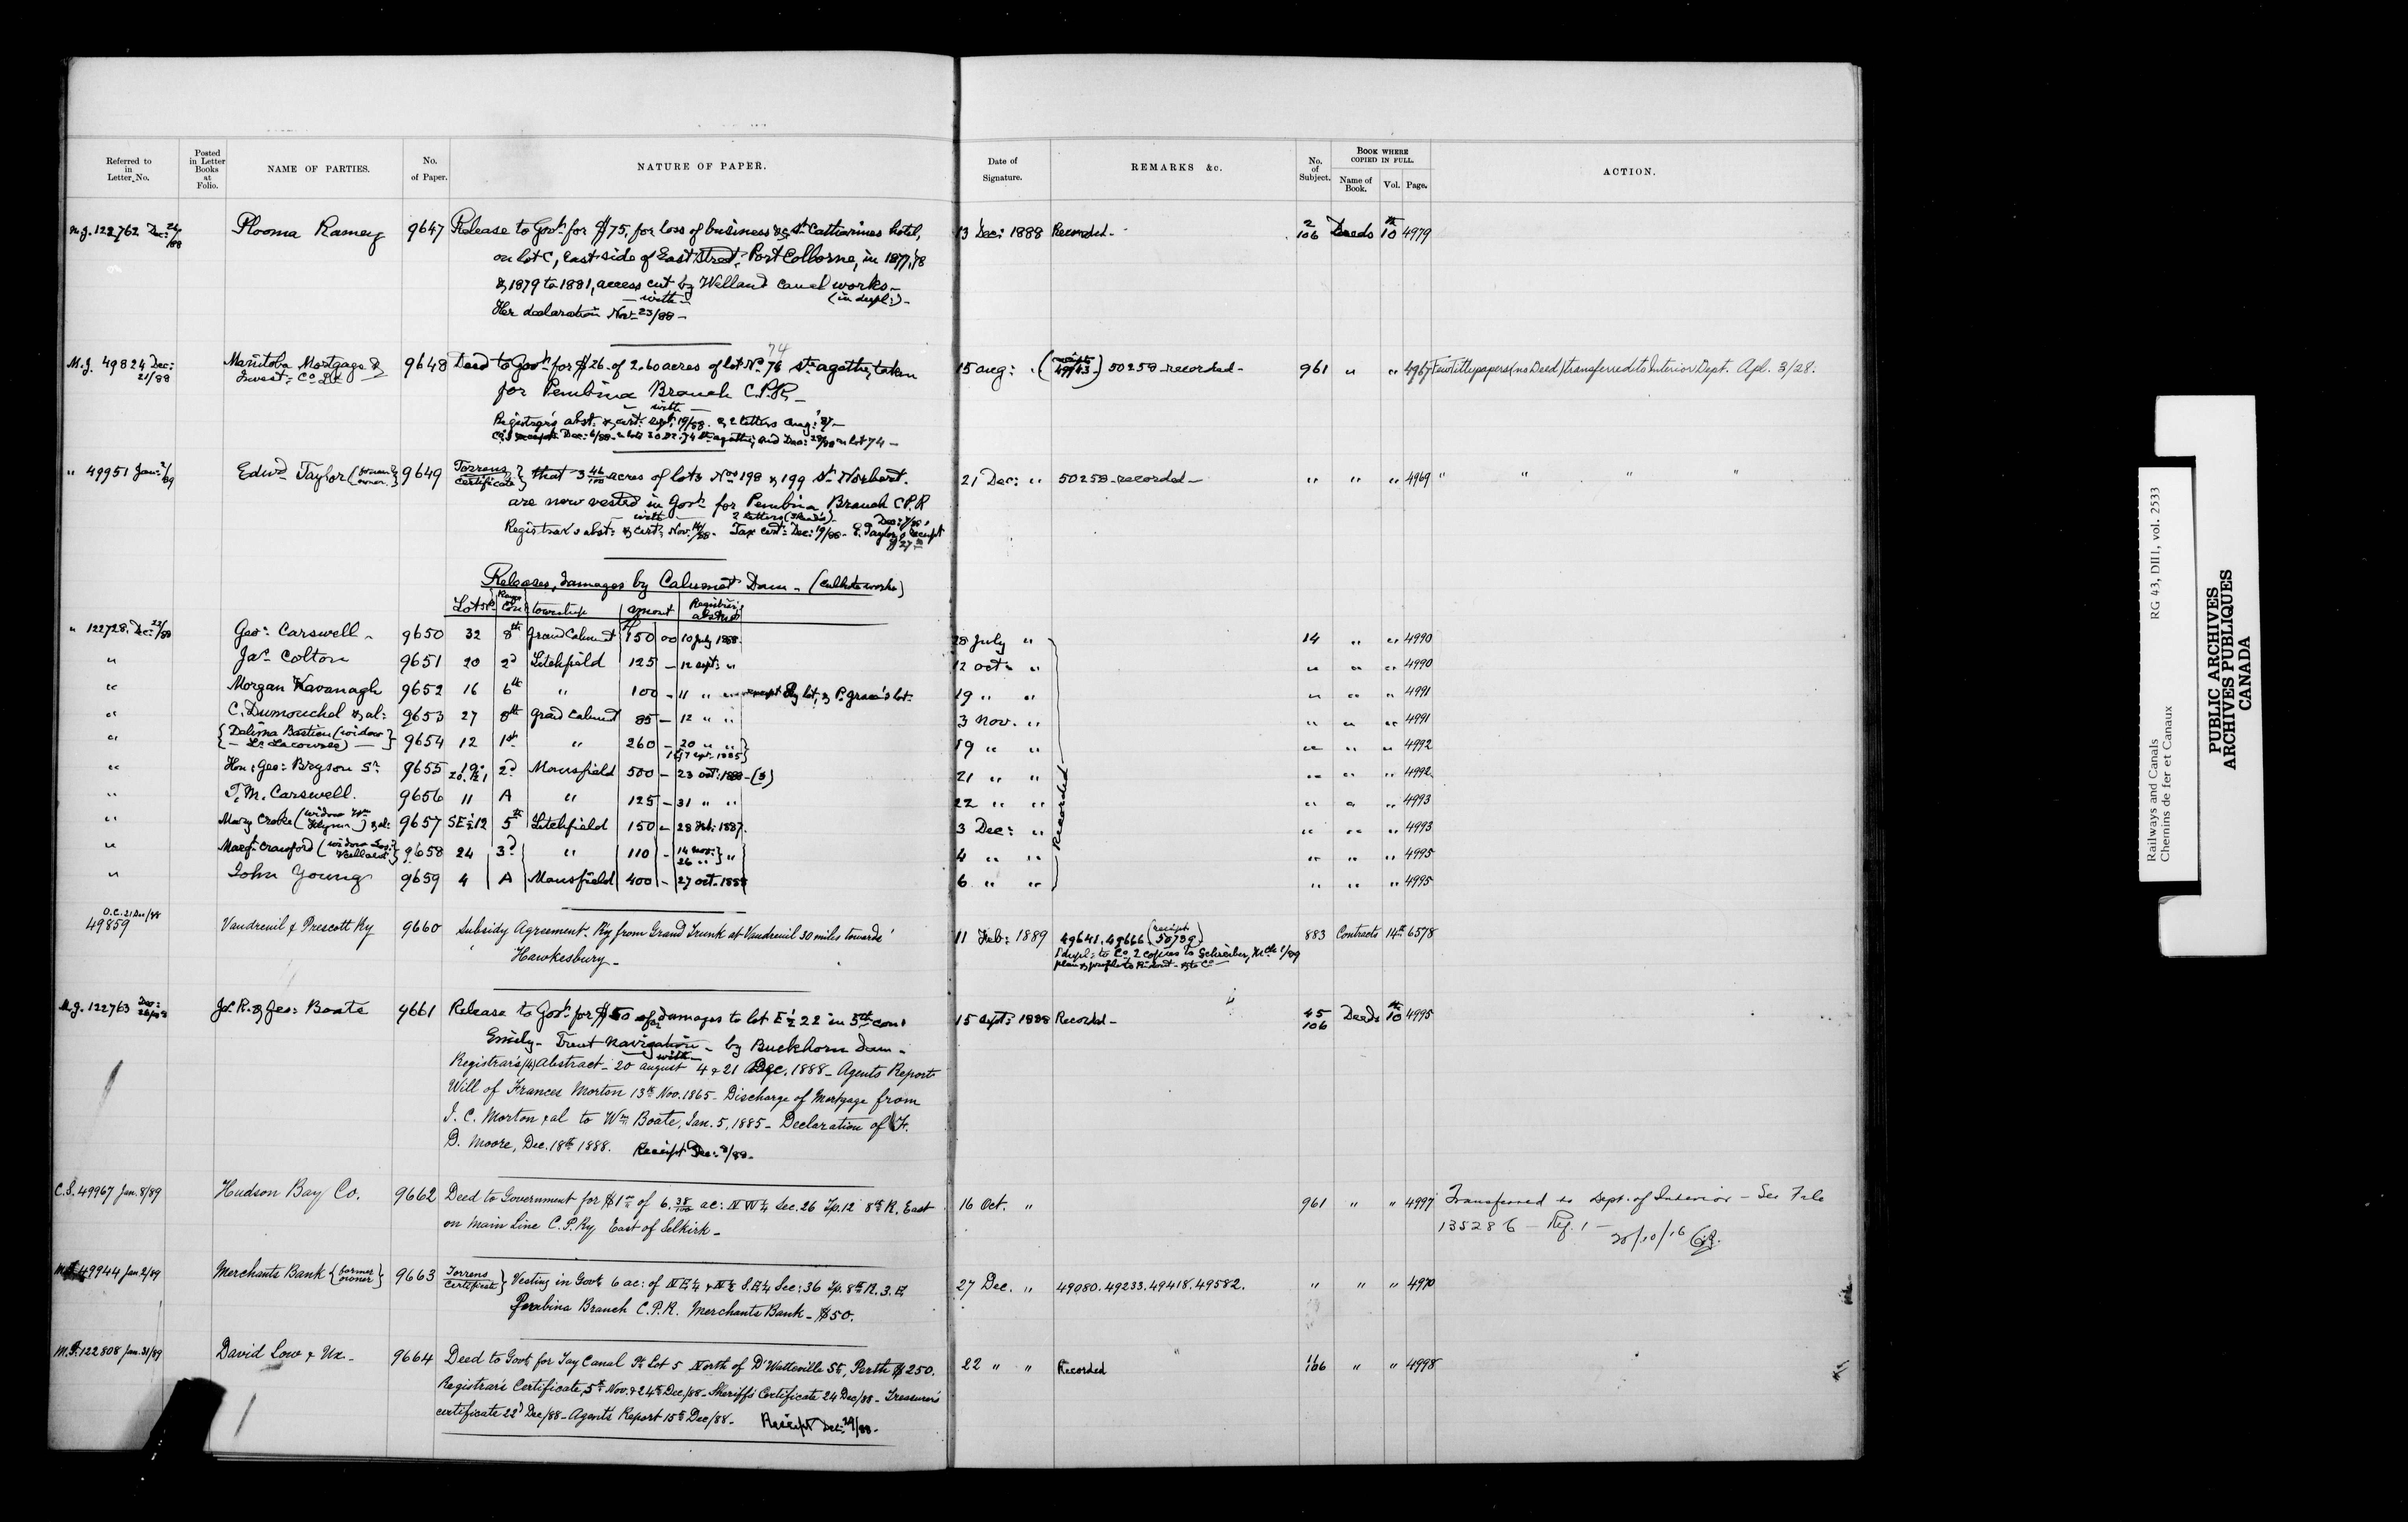 Referred to in Letter No.
Posted in Letter Books at Folio.
NAME OF PARTIES.
No. of Paper.
NATURE OF PAPER.
Date of Signature.
REMARKS &c.
No. of Subject.
BOOK WHERE COPIED IN FULL.
Name of Book.
Vol.
Page.
ACTION.
122762 Dec: 24/88 Plooma Ramey 9647 Release to Govt. for $75, for loss of business &c St. Catharines hotel, 13 Dec: 1888 Recorded - 2/106 Deeds 10th 4979
on lot C, East side of East Street, Port Colborne, in 1877, 78
& 1879 to 1881, access cut by Welland canal works -
- with - (in dupl:) -
Her declaration Nov. 23/88 -
M.J. 49824 Dec: 21/88 Manitoba Mortgage & Invest: Co. Ld. 9648 Deed to Govt. for $26. of 2.60 acres of lot No. 76 74 St. Agathe, taken 15 Aug: " 50258 - recorded - 961 " " 4967 Few Title papers (no Deed) transferred to Interior Dept. Apl. 3/28.
for Pembina Branch C.P.R. -
- with -
Registrar's abst: & cert: Sept. 19/88. & 2 letters Aug: 27 -
" 49951 Jan: 2/89 Edwd. Taylor (former owner.) 9649 Torrens Certificate } that 3 46/100 acres of lots Nos. 198 & 199 St. Norbert. 21 Dec: " 50258 - recorded - " " " 4969 " " " "
are now vested in Govt. for Pembina Branch C.P.R
- with - 2 letters
Registrar's abst: & cert: Nov. 14/88 - Tax cert: Dec: 19/88 - E. Taylor's receipt
$27
Releases, damages by Calumet Dam -
Lots Range Con township amount Registrar's abstract
" 122728. Dec: 22/88 Geo: Carswell - 9650 32 8th Grand Calumet $150 00 10 July 1888. 28 July " 14 " " 4990
" Jas. Colton 9651 20 2d Litchfield 125 - 12 Sept: " 12 Oct: " " " " 4990
" Morgan Kavanagh 9652 16 6th " 100 - 11 " " except Ry lot, & P. Grace's lot - 19 " " " " " 4991
" C. Dumouchel & al: 9653 27 8th Grand Calumet 85 - 12 " " 3 Nov. " " " " 4991
" { Delima Bastien (widow - Ls. Lacourse) - } 9654 12 1st " 260 - 20 " " 19 " " " " " 4992
" Hon: Geo: Bryson Sr. 9655 19. 20. & 21 2d Mansfield 500 - 23 Oct: 1888 - (3) 21 " " " " " 4992
" T. M. Carswell. 9656 11 A " 125 - 31 " " 22 " " " " " 4993
" Mary Croke (widow Wm ) & al: 9657 SE 1/2 12 5th Litchfield 150 - 28 Feb: 1887. 3 Dec: " " " " 4993
" Margt. Crawford 9658 24 3d " 110 - 14 Nov: 26 " } " 4 " " " " " 4995
" John Young 9659 4 A Mansfield 400 - 27 Oct. 1888 6 " " " " " 4995
Recorded
O.C. 21 Dec/88
49859 Vaudreuil & Prescott Ry 9660 Subsidy Agreement. Ry from Grand Trunk at Vaudreuil 30 miles towards 11 Feb: 1889 49641. 49666 (receipt 50739) 883 Contracts 14th 6578
Hawkesbury -
1 dupl: to Co. 2 copies to Schreiber, Mch 1/89
M.J. 122763 Dec: 26/88 Jas. R. & Geo: Boate 9661 Release to Govt. for $50 for damages to lot E 1/2 22 in 5th con: 15 Sept: 1888 Recorded - 45/106 Deeds 10th 4995
Emily - Trent Navigation - by Buckhorn Dam -
- with -
Registrar's (4) Abstract - 20 August 4 & 21 Dec. 1888 - Agents Report
Will of Frances Morton 13th Nov. 1865 - Discharge of Mortgage from
J. C. Morton & al to Wm. Boate, Jan. 5, 1885 - Declaration of F.
D. Moore, Dec. 18th 1888. Receipt Dec: 3/88 -
C.S. 49967 Jan. 8/89 Hudson Bay Co. 9662 Deed to Government for $1 00 of 6. 38/100 ac: N W 1/4 Sec. 26 Tp. 12 8th R. East 16 Oct. " 961 " " 4997 Transferred to Dept. of Interior - See File
on Main Line C.P. Ry East of Selkirk -
135286 - Ref. 1 - 20/10/16
49944 Jan 2/89 Merchants Bank { former owner } 9663 Torrens Certificate } Vesting in Govt. 6 ac: of N E 1/4 & N 1/2 S.E 1/4 Sec: 36 Tp. 8th R. 3. E 27 Dec. " 49080. 49233. 49418. 49582. " " " 4970
Pembina Branch C.P.R. Merchants Bank - $50.
M.J. 122808 Jan. 31/89 David Low & Ux. - 9664 Deed to Govt. for Tay Canal Pt Lot 5 North of D'Watteville St, Perth $250. 22 " " Recorded 11/166 " " 4998
Registrar's Certificate, 5th Nov. & 24th Dec/88 - Sheriff's Certificate 24 Dec/88 - Treasurer's
certificate 22d Dec/88 - Agent's Report 15th Dec/88 - Receipt Dec: 29/88 -
Railways and Canals RG 43, DIII, vol. 2533
Chemins de fer et Canaux
PUBLIC ARCHIVES
ARCHIVES PUBLIQUES
CANADA